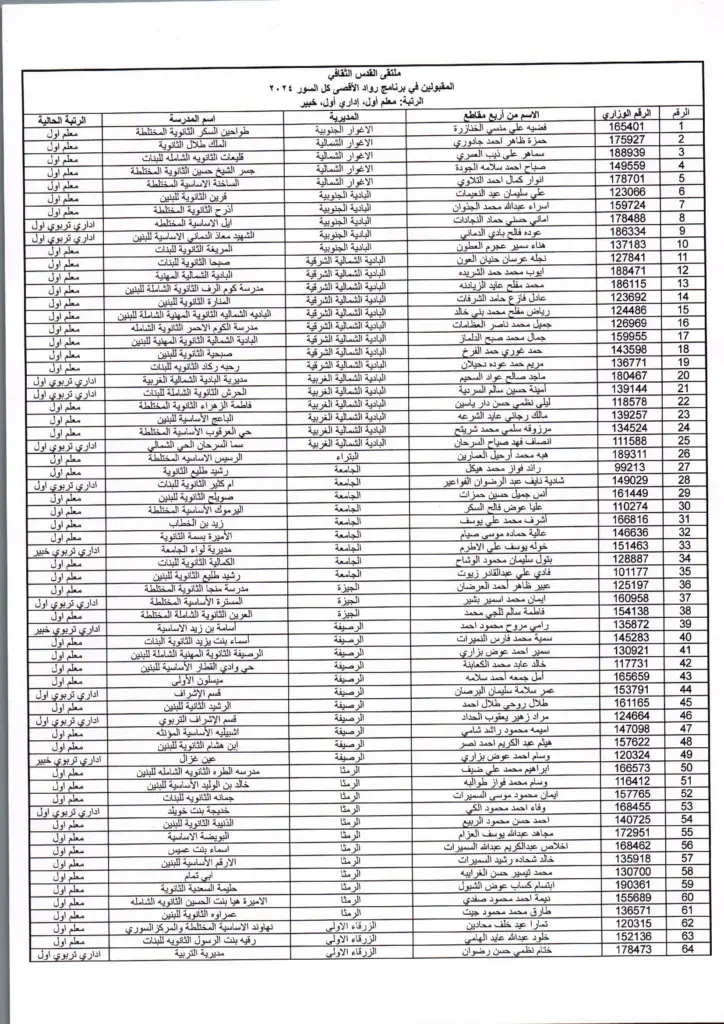 ملتقى القدس الثقافي
المقبولين في برنامج رواد الأقصى كل السور ٢٠٢٤
الرتبة: معلم أول، إداري أول، خبير
الرقم الرقم الوزاري الاسم من أربع مقاطع المديرية اسم المدرسة الرتبة الحالية
1 165401 فضيه علي منسي الخنازرة الاغوار الجنوبية طواحين السكر الثانوية المختلطة معلم اول
2 175927 حمزة ظاهر احمد جادوري الاغوار الشمالية الملك طلال الثانوية معلم اول
3 188939 سماهر علي ذيب العمري الاغوار الشمالية قليعات الثانويه الشامله للبنات معلم اول
4 149559 صباح احمد سلامه الجودة الاغوار الشمالية جسر الشيخ حسين الثانوية المختلطة معلم اول
5 178701 انوار كمال احمد التلاوي الاغوار الشمالية الساخنة الاساسية المختلطة معلم اول
6 123066 علي سليمان عيد النعيمات البادية الجنوبية قرين الثانوية للبنين معلم اول
7 159724 اسراء عبدالله محمد الجذوان البادية الجنوبية أذرح الثانوية المختلطة معلم اول
8 178488 اماني حسني حماد النجادات البادية الجنوبية ايل الاساسية المختلطه اداري تربوي اول
9 186334 عوده فالح بادي الدماني البادية الجنوبية الشهيد معاذ الدماني الاساسية للبنين اداري تربوي اول
10 137183 هناء سمير عجرم العطون البادية الجنوبية المريغة الثانوية للبنات معلم اول
11 127841 نجله عرسان حنيان العون البادية الشمالية الشرقية صبحا الثانوية للبنات معلم اول
12 188471 ايوب محمد حمد الشريده البادية الشمالية الشرقية البادية الشمالية المهنية معلم اول
13 186115 محمد مفلح عايد الزيادنه البادية الشمالية الشرقية مدرسة كوم الرف الثانوية الشاملة للبنين معلم اول
14 123692 عادل فازع حامد الشرفات البادية الشمالية الشرقية المنارة الثانوية للبنين معلم اول
15 124486 رياض مفلح محمد بني خالد البادية الشمالية الشرقية الباديه الشماليه الثانوية المهنية الشاملة للبنين معلم اول
16 126969 جميل محمد ناصر العظامات البادية الشمالية الشرقية مدرسة الكوم الاحمر الثانوية الشامله معلم اول
17 159955 جمال محمد صبح الدلماز البادية الشمالية الشرقية البادية الشمالية الثانوية المهنية للبنين معلم اول
18 143598 حمد غوري حمد الفرخ البادية الشمالية الشرقية صبحية الثانوية للبنين معلم اول
19 136771 مريم حمد عوده دحيلان البادية الشمالية الشرقية رحبه ركاد الثانويه للبنات معلم اول
20 180467 ماجد صالح عواد السحيم البادية الشمالية الغربية مديرية البادية الشمالية الغربية اداري تربوي اول
21 139144 أمينة حسين سالم السردية البادية الشمالية الغربية الحرش الثانوية الشاملة للبنات اداري تربوي اول
22 118578 ليلى نظمي حسن دار ياسين البادية الشمالية الغربية فاطمة الزهراء الثانوية المختلطة معلم اول
23 139257 مالك رجائي عايد الشرعه البادية الشمالية الغربية الباعج الأساسية للبنين معلم اول
24 134524 مرزوقه سلمي محمد شريتح البادية الشمالية الغربية حي العرقوب الأساسية المختلطة معلم اول
25 111588 انصاف فهد صياح السرحان البادية الشمالية الغربية سما السرحان الحي الشمالي اداري تربوي اول
26 189311 هبه محمد ارحيل العمارين البتراء الرسيس الاساسيه المختلطة معلم اول
27 99213 رائد فواز محمد هيكل الجامعة رشيد طليع الثانوية معلم اول
28 149029 شادية نايف عبد الرضوان الفواعير الجامعة ام كثير الثانوية للبنات اداري تربوي اول
29 161449 أنس جميل حسين حمزات الجامعة صويلح الثانوية للبنين معلم اول
30 110274 عليا عوض فالح السكر الجامعة اليرموك الأساسية المختلطة معلم اول
31 166816 أشرف محمد علي يوسف الجامعة زيد بن الخطاب معلم اول
32 146636 عالية حماده موسى صيام الجامعة الأميرة بسمة الثانوية معلم اول
33 151463 خوله يوسف علي الاطرم الجامعة مديرية لواء الجامعة اداري تربوي خبير
34 128887 بتول سليمان محمود الوشاح الجامعة الكمالية الثانوية للبنات معلم اول
35 101177 فادي علي عبدالقادر زيوت الجامعة رشيد طليع الثانوية للبنين معلم اول
36 125197 عبير ظاهر أحمد العرضان الجيزة مدرسة منجا الثانوية المختلطة معلم اول
37 160958 ايمان محمد اسمير بشير الجيزة المسترة الأساسية المختلطة اداري تربوي اول
38 154138 فاطمة سالم ثلجي محمد الجيزة العرين الثانوية الشاملة المختلطة معلم اول
39 135872 رامي مروح محمود احمد الرصيفة أسامة بن زيد الاساسية اداري تربوي خبير
40 145283 سمية محمد فارس النميرات الرصيفة أسماء بنت يزيد الثانوية البنات معلم اول
41 130921 سمير احمد عوض بزاري الرصيفة الرصيفة الثانوية المهنية الشاملة للبنين معلم اول
42 117731 خالد عابد محمد الكعابنة الرصيفة حي وادي القطار الأساسية للبنين معلم اول
43 165659 أمل جمعه أحمد سلامه الرصيفة ميسلون الأولى معلم اول
44 153791 عمر سلامة سليمان البرصان الرصيفة قسم الإشراف اداري تربوي اول
45 161165 طلال روحي طلال احمد الرصيفة الرشيد الثانية للبنين معلم اول
46 124664 مراد زهير يعقوب الحداد الرصيفة قسم الإشراف التربوي اداري تربوي اول
47 147098 اميمه محمود راشد شامي الرصيفة اشبيليه الأساسية المؤنثه معلم اول
48 157622 هيثم عبد الكريم احمد نصر الرصيفة ابن هشام الثانوية للبنين معلم اول
49 120324 وسام احمد عوض بزاري الرصيفة عين غزال اداري تربوي خبير
50 166573 ابراهيم محمد علي ضيف الرمثا مدرسه الطره الثانويه الشامله للبنين معلم اول
51 116412 وسام محمد فواز طوالبه الرمثا خالد بن الوليد الأساسية للبنين معلم اول
52 157765 ايمان محمود موسى السميرات الرمثا جمانه الثانويه للبنات معلم اول
53 168455 وفاء احمد محمود الكي الرمثا خديجة بنت خويلد اداري تربوي اول
54 140725 احمد حسن محمود الربيع الرمثا الذنيبة الثانوية للبنين معلم اول
55 172951 مجاهد عبدالله يوسف العزام الرمثا البويضة الاساسية معلم اول
56 168462 اخلاص عبدالكريم عبدالله السميرات الرمثا اسماء بنت عميس معلم اول
57 135918 خالد شحاده رشيد السميرات الرمثا الارقم الأساسية للبنين معلم اول
58 130700 محمد تيسير حسن الغرايبه الرمثا ابي تمام معلم اول
59 190361 ابتسام كساب عوض الشبول الرمثا حليمة السعدية الثانوية معلم اول
60 155689 ديمة احمد محمود صفدي الرمثا الاميرة هيا بنت الحسين الثانويه الشامله معلم اول
61 136571 طارق محمد محمود جيت الرمثا عمراوه الثانوية للبنين معلم اول
62 120315 تمارا عيد خلف محادين الزرقاء الاولى نهاوند الاساسية المختلطة والمركز السوري معلم اول
63 152136 خلود عبدالله عايد الهامي الزرقاء الاولى رقيه بنت الرسول الثانويه للبنات معلم اول
64 178473 ختام نظمي حسن رضوان الزرقاء الاولى مديرية التربية اداري تربوي اول